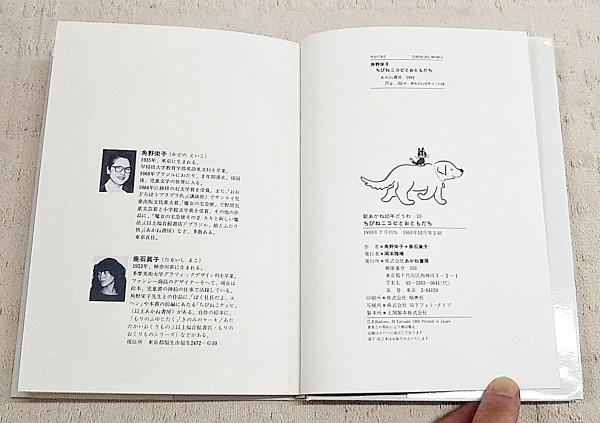 角野栄子(かどの えいこ)
1935年、東京に生まれる。
早稲田大学教育学部英語英文科を卒業。
1960年ブラジルにわたり、2年間滞在。帰国
後、児童文学の世界に入る。
1984年に路傍の石文学賞を受賞。また、「おお
どろぼうブラブラ氏」(講談社)でサンケイ児
童出版文化賞大賞、「魔女の宅急便」で野間児
童文芸賞と小学館文学賞を受賞。その他の作
品に、「魔女の宅急便その2 キキと新しい魔
法」(以上福音館書店)「ブラジル、娘とふたり
旅」(あかね書房)など、多数ある。
東京在住。
垂石眞子(たるいし まこ)
1952年、神奈川県に生まれる。
多摩美術大学グラフィックデザイン科を卒業。
ファンシー商品のデザイナーをへて、現在は
絵本、児童書の挿絵の仕事で活躍している。
角野栄子先生との作品に、「ぼく社長だよ、エ
ヘン」や本書の前編にあたる「ちびねこチョビ」
(以上あかね書房)がある。自作の絵本に、
「もりのふゆじたく」「きのみのケーキ」「あた
たかいおくりもの」(以上福音館書店・もりの
おくりものシリーズ)などがある。
現住所 東京都福生市福生2472-G10
角野栄子
ちびねこコビとおともだち
あかね書房 1993
77p 22㎝
新あかね幼年どうわ 10
ちびねこコビとおともだち
1993年7月初版 1993年12月第2刷
作者●角野栄子●垂石眞子
発行者●岡本雅晴
発行所●株式会社あかね書房
郵便番号 101
東京都千代田区西神田3-2-1
電話 03-3263-0641(代)
振替 東京3-64150
印刷所●株式会社 精興社
写植所●株式会社 田下フォト・タイプ
製本所●土開製本株式会社
©E.Kadono, M.Taruishi 1993 Printed in Japan